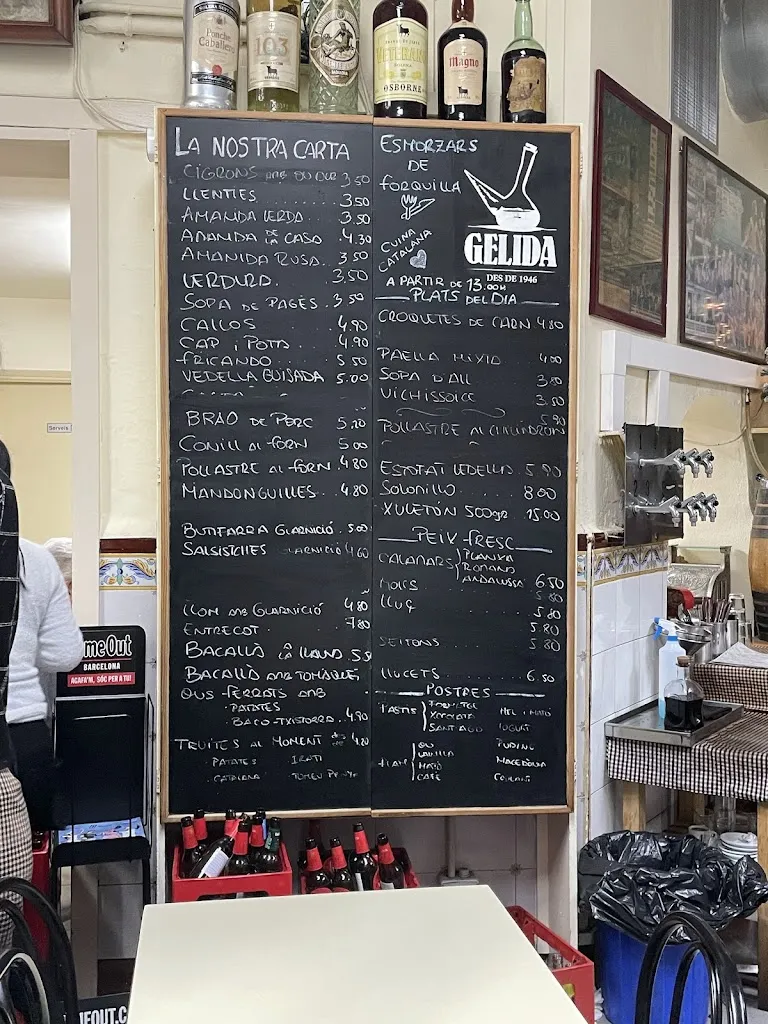 Ponche
Caballero
103
VETERANO
OSBORNE
Magno
LA NOSTRA CARTA
CIGRONS AMB OU DUR 3,50
LLENTIES 3,50
AMANIDA VERDA 3,50
AMANIDA DE LA CASA 4,30
AMANIDA RUSA 3,50
VERDURA 3,50
SOPA DE PAGÈS 3,50
CALLOS 4,90
CAP i POTA 4,90
FRICANDO 5,50
VEDELLA GUISADA 5,00
BRAÓ DE PORC 5,20
CONILL AL FORN 5,00
POLLASTRE AL FORN 4,80
MANDONGUILLES 4,80
BUTIFARRA GUARNICIÓ 5,00
SALSITCHES GUARNICIÓ 4,60
LLOM AMB GUARNICIÓ 4,80
ENTRECOT 7,80
BACALLÀ A LA LLAUNA 5,9
BACALLÀ AMB TOMÀQUET
OUS FERRATS AMB
· PATATES
· BACO-TXISTORRA 4,90
TRUITES AL MOMENT 4,20
· PATATES
· CATALANA
ESMORZARS
DE
FORQUILLA
CUINA
CATALANA
GELIDA
DES DE 1946
A PARTIR DE 13.00H
PLATS DEL DIA
CROQUETES DE CARN 4,80
PAELLA MIXTA 4,00
SOPA D'ALL 3,80
VICHISSOICE 3,50
POLLASTRE AL CHILINDRON 5,90
ESTOFAT VEDELLA 5,90
SOLOMILLO 8,00
XULETÓN 500gr. 15,00
PEIX FRESC
CALAMARS PLANXA
ROMANA
ANDALUSSA 6,50
MOLLS 5,80
LLUÇ 5,80
5,80
SEITONS 5,80
LLUCETS 6,50
POSTRES
PASTIS FORMATGE
XOCOLATA
SANTIAGO
MEL I MATÓ
IOGURT
FLAM OU
VAINILLA
MATÓ
CAFÉ
PUDING
MACEDONIA
Serveis
TimeOut
BARCELONA
AGAFA'M, SÓC PER A TU!